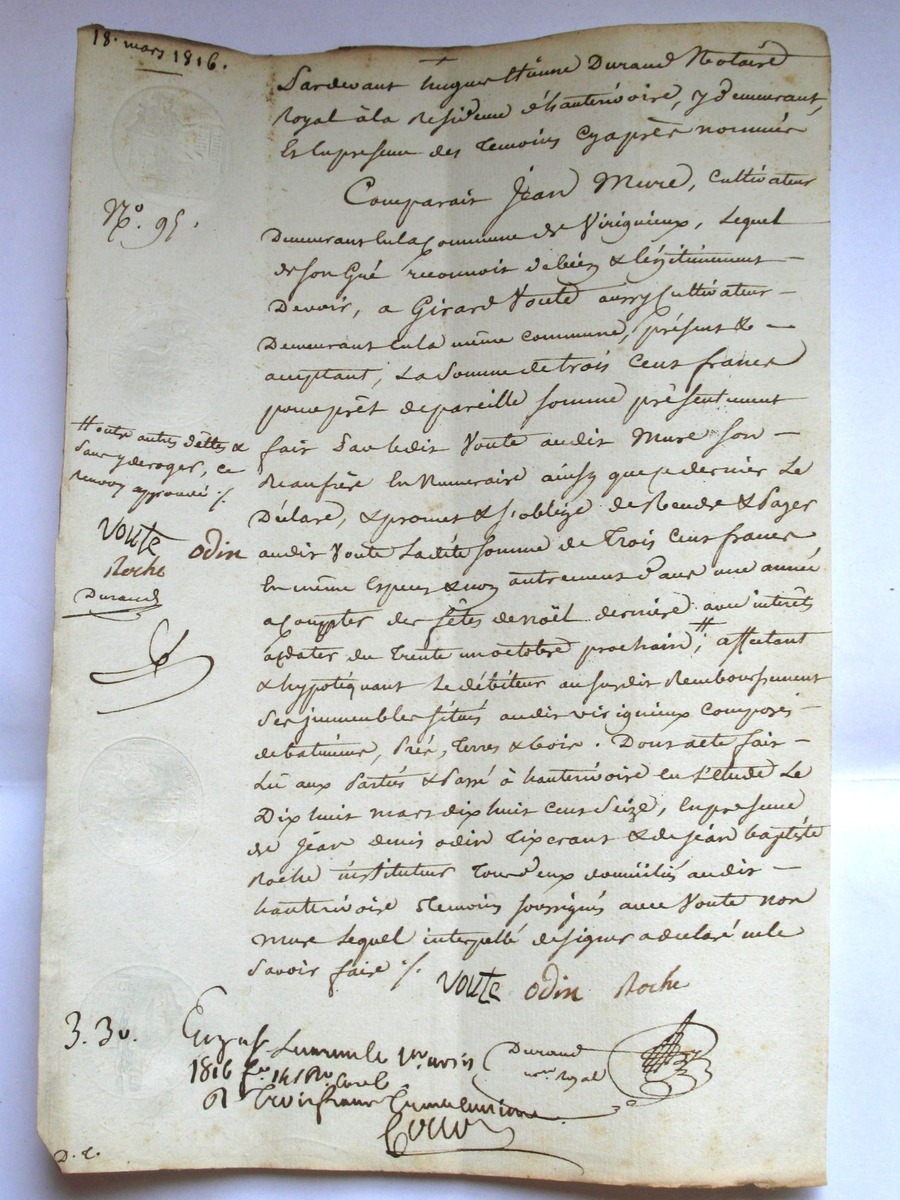 18. mars 1816.
Pardevant hugues Etienne Durand Notaire
Royal à la Residence d'hauterivoire, y demeurant,
Et en presence des temoins cyaprès nommés
Comparait Jean Mure, Cultivateur
Demeurant en la Commune de Virigneux, Lequel
de son Gré reconnoit debien & légitimement
Devoir, a Girard Voute aussy Cultivateur
Demeurant en la même commune, présent &
acceptant, La Somme de trois Cent francs
pour prêt de pareille somme présentement
fait Par ledit Voute audit Mure son
Beaufrère en Numeraire ainsy que ce dernier Le
Déclare, & promet & s'oblige de Rendre & Payer
audit Voute Ladite somme de Trois Cent francs
En même Especes & non autrement dans une année
a Compter des fêtes de noël derniere avec interêts
à dater du Trente un octobre prochain, # affectant
& hypotéquant Le débiteur au susdit Remboursement
Ses immeubles situés audit virigneux composés
de batimens, Prés, Terres & bois. Dont acte fait
Lû aux Parties & Passé à hauterivoire en l'Etude Le
Dix huit mars dix huit Cent Seize, En presence
de Jean denis odin Tixerant & de jean baptiste
Roche instituteur Tous deux domiciliés audit
hauterivoire Temoins soussignés avec Voute non
Mure Lequel interpellé de signer a declaré ne le
Savoir faire ./.
Voute odin Roche
Durand
Nre Royal
No. 95.
# outre autres dettes &
Sans y deroger, ce
Renvoy approuvé ./.
Voute odin
Roche
Durand
3. 30.
1816
R Trois francs Trente centimes
D. C.